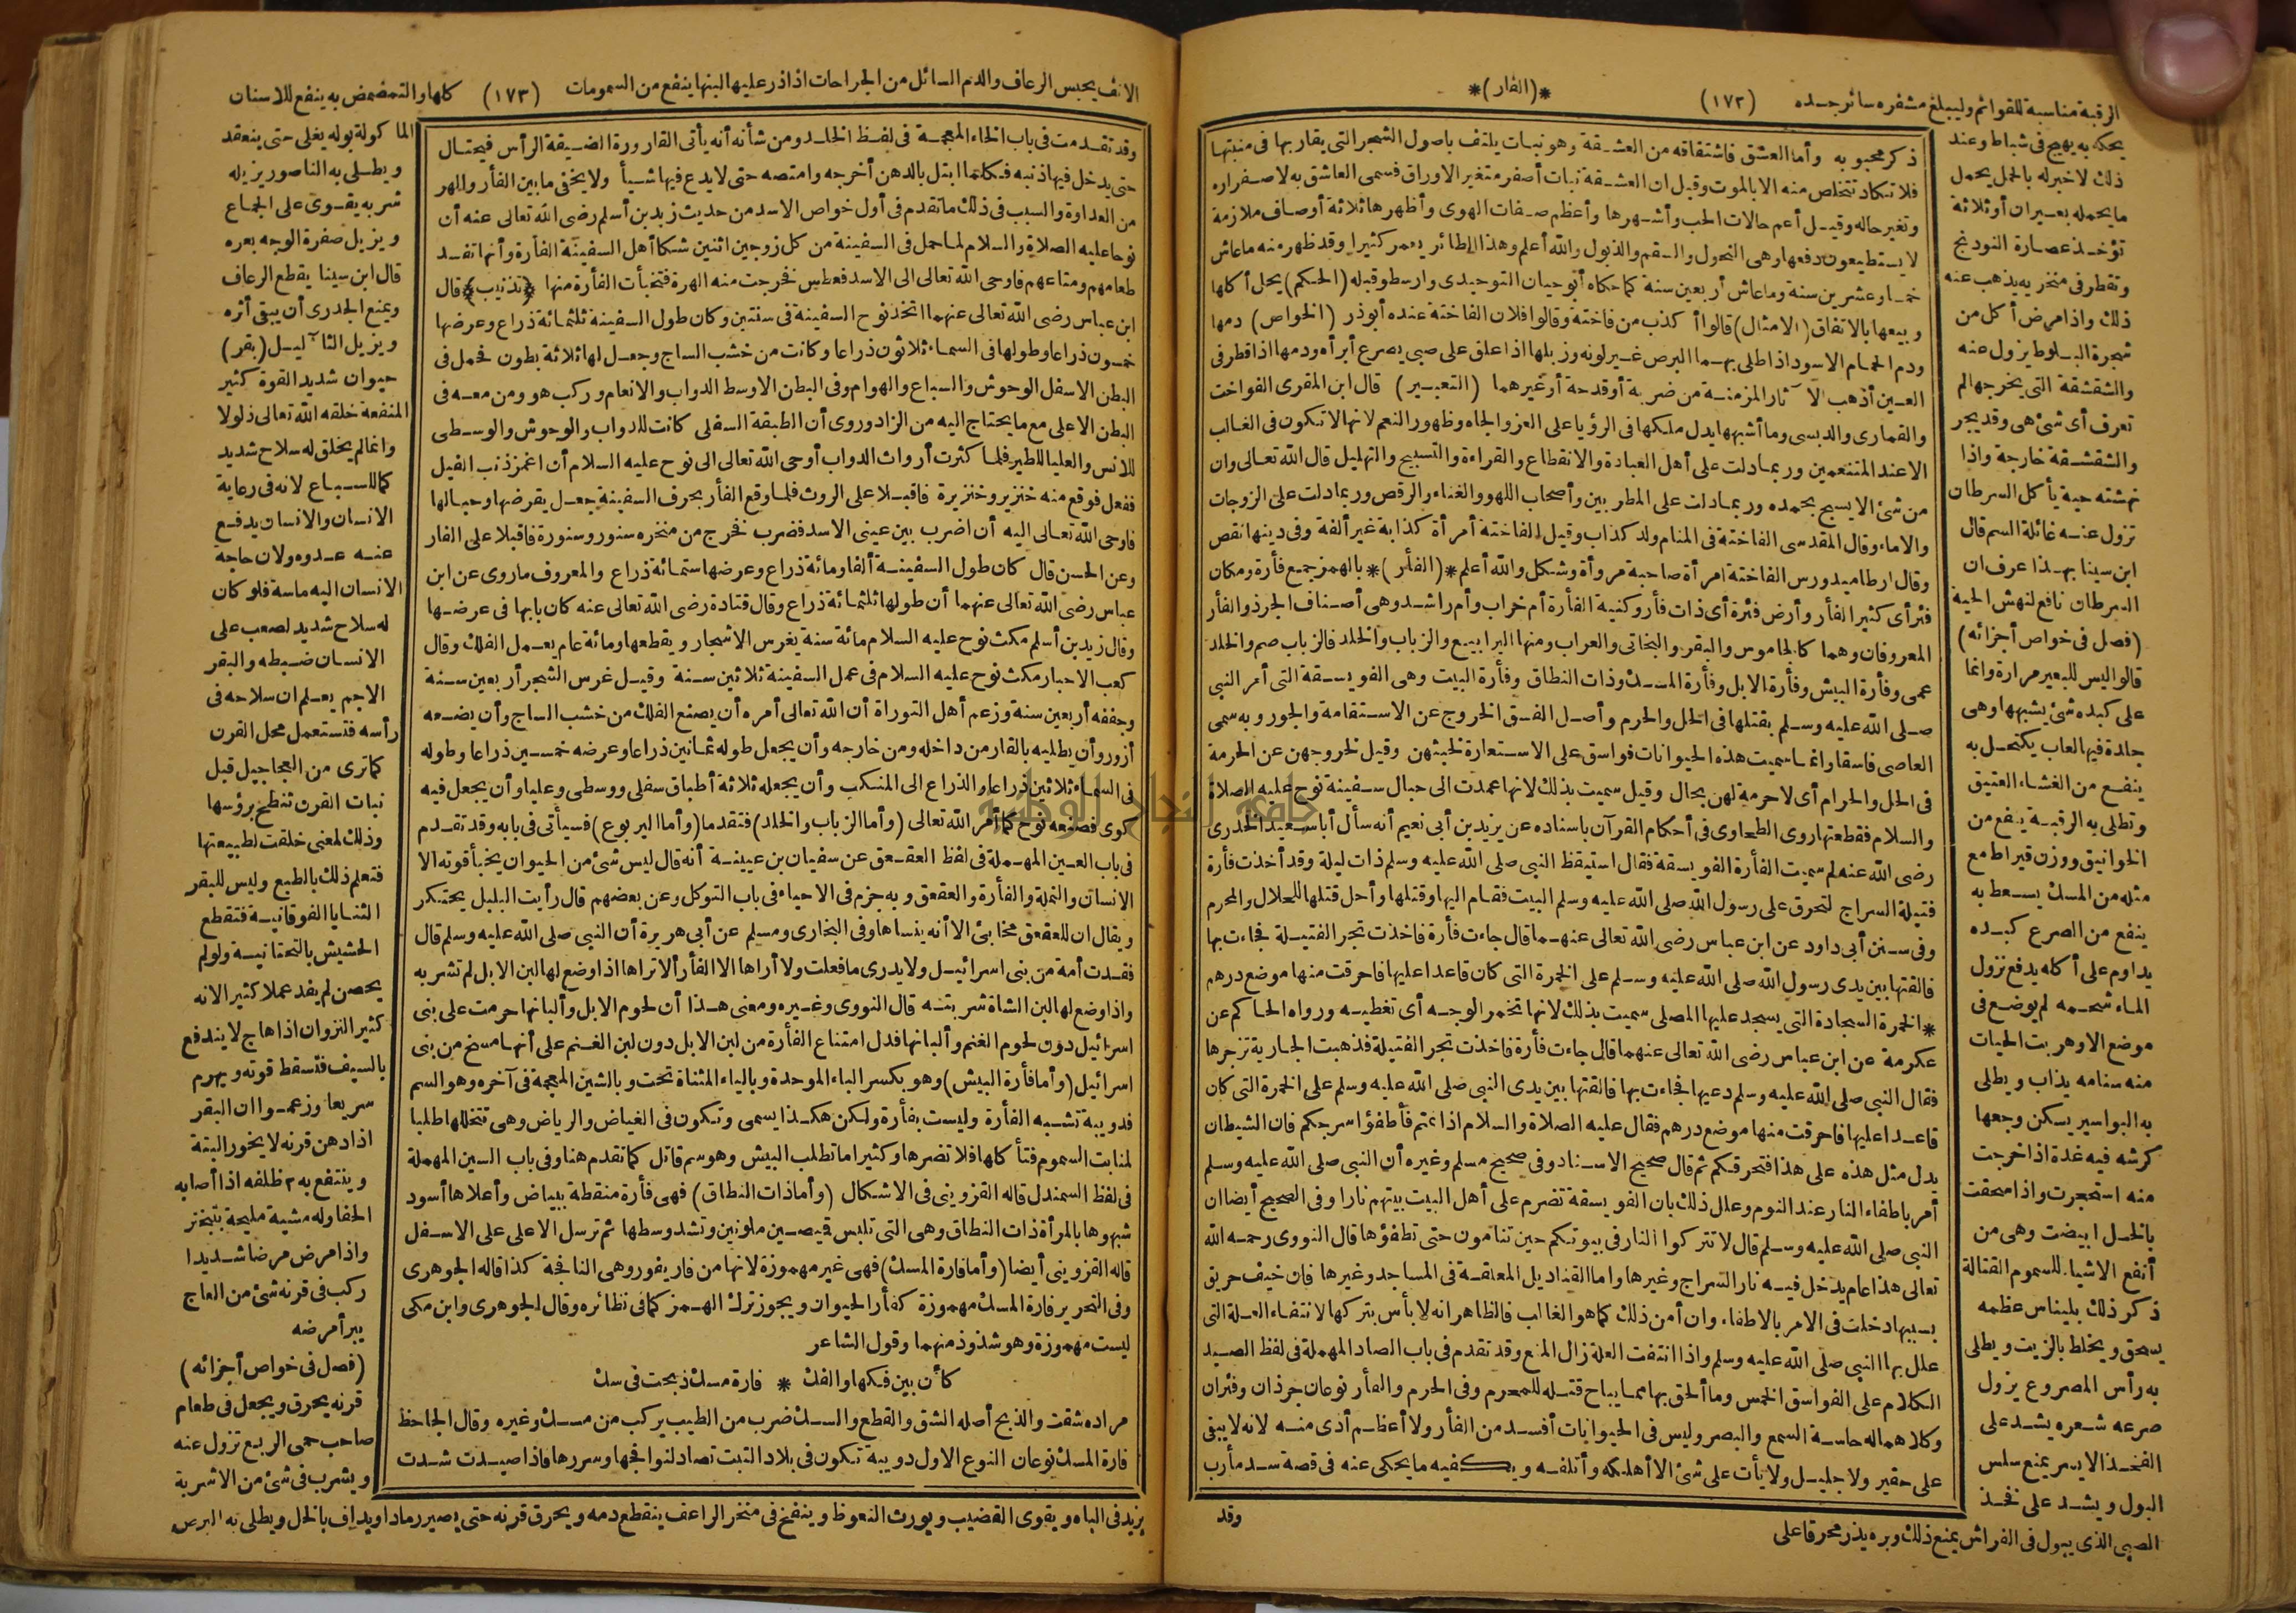 الرقبة مناسبة للقوائم وليبلغ مشفره سائر جسده (١٧٢) *(الفار)*
يحكه به يهيج فى شباط وعند
ذلك لا خبر له بالحمل يحمل
ما يحمله بعيران أو ثلاثة
تؤخذ عصارة النودنج
وتقطر فى منخريه يذهب عنه
ذلك واذا مرض أكل من
شجرة البلوط يزول عنه
والشقشقة التى يخرجها لم
تعرف أى شئ هى وقد يجر
والشقشقة خارجة واذا
نهشته حية يأكل السرطان
تزول عنه غائلة السم قال
ابن سينا بهذا عرف ان
السرطان نافع لنهش الحية
(فصل فى خواص أجزائه)
قالوا ليس للبعير مرارة وانما
على كبده شئ يشبهها وهى
جلدة فيها لعاب يكتحل به
ينفع من الغشاء العتيق
وتطلى به الرقبة ينفع من
الخوانيق ووزن قيراط مع
مثله من المسك يسعط به
ينفع من الصرع كبده
يداوم على أكله يدفع نزول
الماء شحمه لم يوضع فى
موضع الا وهربت الحيات
منه سنامه يذاب ويطلى
به البواسير يسكن وجعها
كرشه فيه غدة اذا خرجت
منه استحجرت واذا سحقت
بالخل ابيضت وهى من
أنفع الاشياء للسموم القتالة
ذكر ذلك بليناس عظمه
يسحق ويخلط بالزيت ويطلى
به رأس المصروع يزول
صرعه شعره يشد على
الفخذ الايسر يمنع سلس
البول ويشد على فخذ
الصبى الذى يبول فى الفراش يمنع ذلك وبره يذر محرقا على
ذكر محبوبه وأما العشق فاشتقاقه من العشقة وهو نبات يلتف باصول الشجر التى يقاربها فى منبتها
فلا تكاد تتخلص منه الا بالموت وقيل ان العشقة نبات أصفر متغير الاوراق فسمى العاشق به لاصفراره
وتغير حاله وقيل أعم حالات الحب وأشهرها وأعظم صفات الهوى وأظهرها ثلاثة أوصاف ملازمة
لا يستطيعون دفعها وهى النحول والسقم والذبول والله أعلم وهذا الطائر يعمر كثيرا وقد ظهر منه ما عاش
خمسا وعشرين سنة وما عاش أربعين سنة كما حكاه أبو حيان التوحيدى وارسطو قبله (الحكم) يحل أكلها
وبيعها بالاتفاق (الامثال) قالوا أكذب من فاختة وقالوا فلان الفاختة عنده أبو ذر (الخواص) دمها
ودم الحمام الاسود اذا طلى بهما البرص غير لونه وزبلها اذا علق على صبى يصرع أبرأه ودمها اذا قطر فى
العين أذهب الآثار المزمنة من ضربة أو قدحة أو غيرهما (التعبير) قال ابن المقرى الفواخت
والقمارى والدبسى وما أشبهها يدل ملكها فى الرؤيا على العز والجاه وظهور النعم لانها لا تكون فى الغالب
الا عند المتنعمين وربما دلت على أهل العبادة والانقطاع والقراءة والتسبيح والتهليل قال الله تعالى وان
من شئ الا يسبح بحمده وربما دلت على المطربين وأصحاب اللهو والغناء والرقص وربما دلت على الزوجات
والاماء وقال المقدسى الفاختة فى المنام ولد كذاب وقيل الفاختة امرأة كذابة غير ألفة وفى دينها نقص
وقال ارطاميدورس الفاختة امرأة صاحبة مروأة وشكل والله أعلم *(الفأر)* بالهمز جمع فأرة ومكان
فئر أى كثير الفأر وأرض فئرة أى ذات فأر وكنية الفأرة أم خراب وأم راشد وهى أصناف الجرذ والفأر
المعروفان وهما كالجاموس والبقر والبخاتى والعراب ومنها اليرابيع والزباب والخلد فالزباب صم والخلد
عمى وفأرة البيش وفأرة الابل وفأرة المسك وذات النطاق وفأرة البيت وهى الفويسقة التى أمر النبى
صلى الله عليه وسلم بقتلها فى الحل والحرم وأصل الفسق الخروج عن الاستقامة والجور وبه سمى
العاصى فاسقا وانما سميت هذه الحيوانات فواسق على الاستعارة لخبثهن وقيل لخروجهن عن الحرمة
فى الحل والحرام أى لا حرمة لهن بحال وقيل سميت بذلك لانها عمدت الى حبال سفينة نوح عليه الصلاة
والسلام فقطعتها روى الطحاوى فى أحكام القرآن باسناده عن يزيد بن أبى نعيم أنه سأل أبا سعيد الخدرى
رضى الله عنه لم سميت الفأرة الفويسقة فقال استيقظ النبى صلى الله عليه وسلم ذات ليلة وقد أخذت فأرة
فتيلة السراج لتحرق على رسول الله صلى الله عليه وسلم البيت فقام اليها وقتلها وأحل قتلها للحلال والمحرم
وفى سنن أبى داود عن ابن عباس رضى الله تعالى عنهما قال جاءت فأرة فاخذت تجر الفتيلة فجاءت بها
فالقتها بين يدى رسول الله صلى الله عليه وسلم على الخمرة التى كان قاعدا عليها فاحرقت منها موضع درهم
* الخمرة السجادة التى يسجد عليها المصلى سميت بذلك لانها تخمر الوجه أى تغطيه ورواه الحاكم عن
عكرمة عن ابن عباس رضى الله تعالى عنهما قال جاءت فأرة فاخذت تجر الفتيلة فذهبت الجارية تزجرها
فقال النبى صلى الله عليه وسلم دعيها فجاءت بها فالقتها بين يدى النبى صلى الله عليه وسلم على الخمرة التى كان
قاعدا عليها فاحرقت منها موضع درهم فقال عليه الصلاة والسلام اذا نمتم فأطفؤا سرجكم فان الشيطان
يدل مثل هذه على هذا فتحرقكم ثم قال صحيح الاسناد وفى صحيح مسلم وغيره أن النبى صلى الله عليه وسلم
أمر باطفاء النار عند النوم وعلل ذلك بان الفويسقة تضرم على أهل البيت بيتهم نارا وفى الصحيح أيضا ان
النبى صلى الله عليه وسلم قال لا تتركوا النار فى بيوتكم حين تنامون حتى تطفؤها قال النووى رحمه الله
تعالى هذا عام يدخل فيه نار السراج وغيرها واما القناديل المعلقة فى المساجد وغيرها فان خيف حريق
بسببها دخلت فى الامر بالاطفاء وان أمن ذلك كما هو الغالب فالظاهر انه لا بأس بتركها لانتفاء العلة التى
علل بها النبى صلى الله عليه وسلم واذا انتفت العلة زال المنع وقد تقدم فى باب الصاد المهملة فى لفظ الصيد
الكلام على الفواسق الخمس وما ألحق بها مما يباح قتله للمحرم وفى الحرم والفأر نوعان جرذان وفئران
وكلاهما له حاسة السمع والبصر وليس فى الحيوانات أفسد من الفأر ولا أعظم أذى منه لانه لا يبقى
على حقير ولا جليل ولا يأت على شئ الا أهلكه وأتلفه ويكفيه ما يحكى عنه فى قصة سد مأرب
وقد
الانف يحبس الرعاف والدم السائل من الجراحات اذا ذر عليها لبنها ينفع من السمومات (١٧٣) كلها والتمضمض به ينفع للاسنان
وقد تقدمت فى باب الخاء المعجمة فى لفظ الخلد ومن شأنه أنه يأتى القارورة الضيقة الرأس فيحتال
حتى يدخل فيها ذنبه فكلما ابتل بالدهن أخرجه وامتصه حتى لا يدع فيها شيأ ولا يخفى ما بين الفأر والهر
من العداوة والسبب فى ذلك ما تقدم فى أول خواص الاسد من حديث زيد بن أسلم رضى الله تعالى عنه أن
نوحا عليه الصلاة والسلام لما حمل فى السفينة من كل زوجين اثنين شكا أهل السفينة الفأرة وأنها تفسد
طعامهم ومتاعهم فاوحى الله تعالى الى الاسد فعطس فخرجت منه الهرة فتخبأت الفأرة منها (تذنيب) قال
ابن عباس رضى الله تعالى عنهما اتخذ نوح السفينة فى سنتين وكان طول السفينة ثلثمائة ذراع وعرضها
خمسون ذراعا وطولها فى السماء ثلاثون ذراعا وكانت من خشب الساج وجعل لها ثلاثة بطون فحمل فى
البطن الاسفل الوحوش والسباع والهوام وفى البطن الاوسط الدواب والانعام وركب هو ومن معه فى
البطن الاعلى مع ما يحتاج اليه من الزاد وروى أن الطبقة السفلى كانت للدواب والوحوش والوسطى
للانس والعليا للطير فلما كثرت أرواث الدواب أوحى الله تعالى الى نوح عليه السلام أن اغمز ذنب الفيل
ففعل فوقع منه خنزير وخنزيرة فاقبلا على الروث فلما وقع الفأر بحرف السفينة جعل يقرضها وحبالها
فاوحى الله تعالى اليه أن اضرب بين عينى الاسد فضرب فخرج من منخره سنور وسنورة فاقبلا على الفار
وعن الحسن قال كان طول السفينة ألفا ومائة ذراع وعرضها ستمائة ذراع والمعروف ما روى عن ابن
عباس رضى الله تعالى عنهما أن طولها ثلثمائة ذراع وقال قتادة رضى الله تعالى عنه كان بابها فى عرضها
وقال زيد بن أسلم مكث نوح عليه السلام مائة سنة يغرس الاشجار ويقطعها ومائة عام يعمل الفلك وقال
كعب الاحبار مكث نوح عليه السلام فى عمل السفينة ثلاثين سنة وقيل غرس الشجر أربعين سنة
وجففه أربعين سنة وزعم أهل التوراة أن الله تعالى أمره أن يصنع الفلك من خشب الساج وأن يضعه
أزور وأن يطليه بالقار من داخله ومن خارجه وأن يجعل طوله ثمانين ذراعا وعرضه خمسين ذراعا وطوله
فى السماء ثلاثين ذراعا والذراع الى المنكب وأن يجعله ثلاثة أطباق سفلى ووسطى وعليا وأن يجعل فيه
كوى فصنعه نوح كما أمر الله تعالى (وأما الزباب والخلد) فتقدما (وأما اليربوع) فسيأتى فى بابه وقد تقدم
فى باب العين المهملة فى لفظ العقعق عن سفيان بن عيينة أنه قال ليس شئ من الحيوان يخبأ قوته الا
الانسان والنملة والفأرة والعقعق وبه جزم فى الاحياء فى باب التوكل وعن بعضهم قال رأيت البلبل يحتكر
ويقال ان للعقعق مخابئ الا أنه ينساها وفى البخارى ومسلم عن أبى هريرة أن النبى صلى الله عليه وسلم قال
فقدت أمة من بنى اسرائيل ولا يدرى ما فعلت ولا أراها الا الفأر ألا تراها اذا وضع لها لبن الابل لم تشربه
واذا وضع لها لبن الشاة شربته قال النووى وغيره ومعنى هذا أن لحوم الابل وألبانها حرمت على بنى
اسرائيل دون لحوم الغنم وألبانها فدل امتناع الفأرة من لبن الابل دون لبن الغنم على أنها مسخ من بنى
اسرائيل (وأما فأرة البيش) وهو بكسر الباء الموحدة وبالياء المثناة تحت وبالشين المعجمة فى آخره وهو السم
فدويبة تشبه الفأرة وليست بفأرة ولكن هكذا يسمى وتكون فى الغياض والرياض وهى تتخللها طلبا
لمنابت السموم فتأكلها فلا تضرها وكثيرا ما تطلب البيش وهو سم قاتل كما تقدم هنا وفى باب السين المهملة
فى لفظ السمندل قاله القزوينى فى الاشكال (وأما ذات النطاق) فهى فأرة منقطة ببياض وأعلاها أسود
شبهوها بالمرأة ذات النطاق وهى التى تلبس قميصين ملونين وتشد وسطها ثم ترسل الاعلى على الاسفل
قاله القزوينى أيضا (وأما فارة المسك) فهى غير مهموزة لانها من فار يفور وهى النافجة كذا قاله الجوهرى
وفى التحرير فارة المسك مهموزة كفأر الحيوان ويجوز ترك الهمز كما فى نظائره وقال الجوهرى وابن مكى
ليست مهموزة وهو شذوذ منهما وقول الشاعر
كأن بين فكها والفك * فارة مسك ذبحت فى سك
مراده شقت والذبح أصله الشق والقطع والسك ضرب من الطيب يركب من مسك وغيره وقال الجاحظ
فارة المسك نوعان النوع الاول دويبة تكون فى بلاد التبت تصاد لنوافجها وسررها فاذا صيدت شدت
الماكولة بوله يغلى حتى ينعقد
ويطلى به الناصور يزيله
شربه يقوى على الجماع
ويزيل صفرة الوجه بعره
قال ابن سينا يقطع الرعاف
ويمنع الجدرى أن يبقى أثره
ويزيل الثآليل (بقر)
حيوان شديد القوة كثير
المنفعة خلقه الله تعالى ذلولا
وانما لم يخلق له سلاح شديد
كما للسباع لانه فى رعاية
الانسان والانسان يدفع
عنه عدوه ولان حاجة
الانسان اليه ماسة فلو كان
له سلاح شديد لصعب على
الانسان ضبطه والبقر
الاجم يعلم ان سلاحه فى
رأسه فتستعمل محل القرن
كما ترى من العجاجيل قبل
نبات القرن تنطح برؤسها
وذلك لمعنى خلقت لطبيعتها
فتعلم ذلك بالطبع وليس للبقر
الثنايا الفوقانية فتقطع
الحشيش بالتحتانية ولو لم
يحصن لم يفد عملا كثير الانه
كثير النزوان اذا هاج لا يندفع
بالسيف فتسقط قوته ويهرم
سريعا وزعموا ان البقر
اذا دهن قرنه لا يخور البتة
وينتفع به م ظلفه اذا أصابه
الحفا وله مشية مليحة يتبختر
واذا مرض مرضا شديدا
ركب فى قرنه شئ من العاج
يبرأ مرضه
(فصل فى خواص أجزائه)
قرنه يحرق ويجعل فى طعام
صاحب حمى الربع تزول عنه
ويشرب فى شئ من الاشربة
يزيد فى الباه ويقوى القضيب ويورث النعوظ وينفخ فى منخر الراعف ينقطع دمه ويحرق قرنه حتى يصير رمادا ويداف بالخل ويطلى به البرص